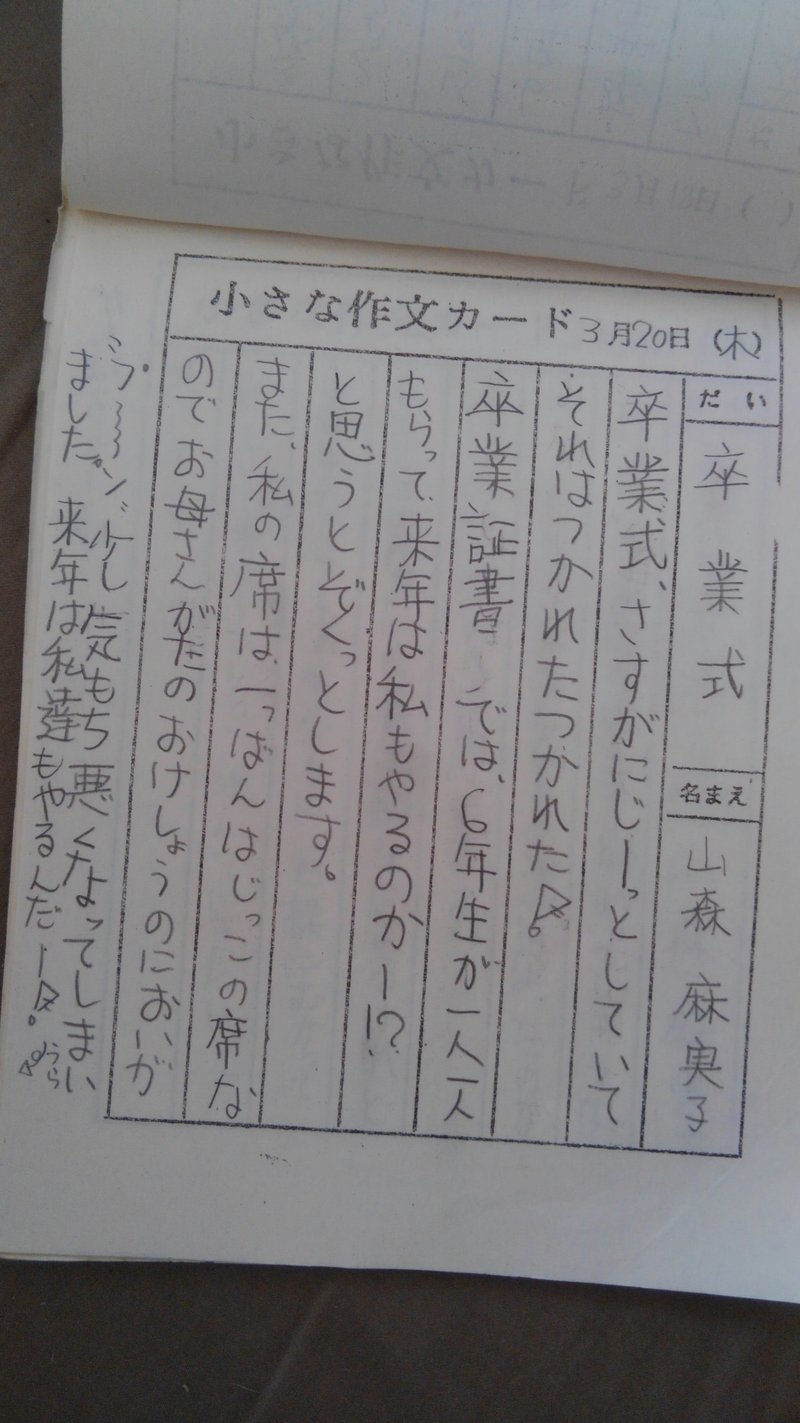 小さな作文カード 3月20日(木)
だい 卒業式
名まえ 山森 麻実子
卒業式、さすがにじーっとしていて
それはつかれたつかれた
卒業証書 では、6年生が一人一人
もらって、来年は私もやるのかー!?
と思うとぞくっとします。
また、私の席は、一っばんはじっこの席な
のでお母さんがたのおけしょうのにおいが
少し気もち悪くなってしまい
ました。来年は私達もやるんだー
うら